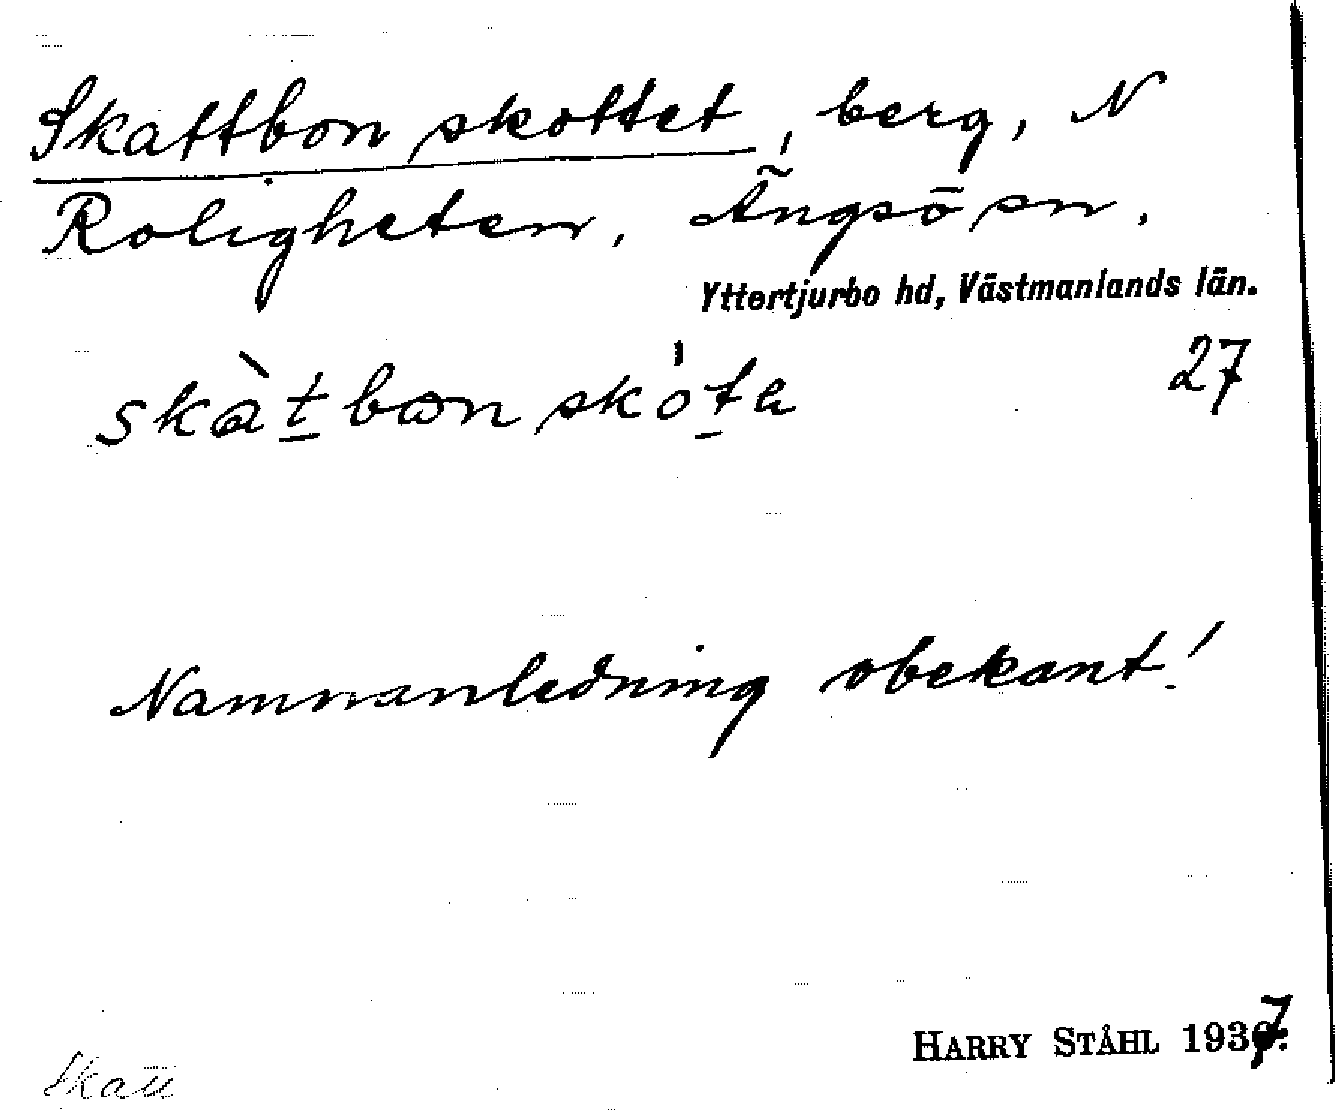 Skattbon skottet, berg, N
Roligheten, Ängsö sn.
Yttertjurbo hd, Västmanlands län.
27
skàt̲bωn skót̲a
Namnanledning obekant!
HARRY STÅHL 1937.